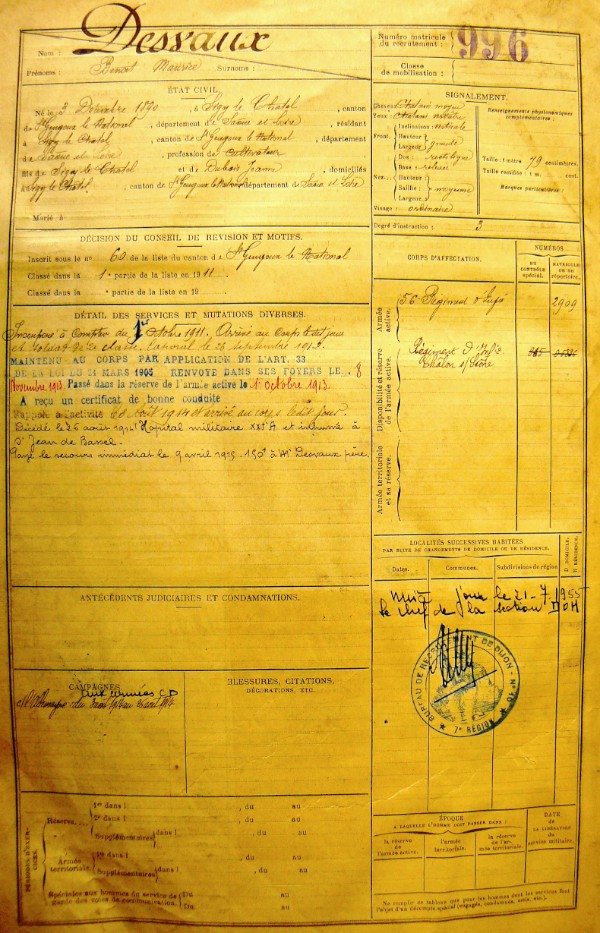 Nom : Dessaux
Prénoms : Benoit Maurice Surnoms :
Numéro matricule
du recrutement : 996
Classe
de mobilisation :
ÉTAT CIVIL.
Né le 3 Décembre 1890, à Sigy le Châtel, canton
de St Gengoux le National, département de Saône et Loire, résidant
à Sigy le Châtel, canton de St Gengoux le National, département
de Saône et Loire, profession de Cultivateur
fils de et de Jeanne, domiciliés
Sigy le Châtel, canton de St Gengoux le National département de Saône et Loire
Marié à
SIGNALEMENT.
Cheveux châtain moyen
Yeux
Front Inclinaison verticale
Hauteur
Largeur grande
Nez Dos rectiligne
Base
Hauteur
Saillie moyenne
Largeur
Visage ordinaire
Renseignements physionomiques
complémentaires :
Taille : 1 mètre 79 centimètres.
Taille rectifiée : 1 m. cent.
Marques particulières :
Degré d'instruction : 3
DÉCISION DU CONSEIL DE RÉVISION ET MOTIFS.
Inscrit sous le n° 60 de la liste du canton de St Gengoux le National
Classé dans la 1e partie de la liste en 1911
Classé dans la partie de la liste en 19
CORPS D'AFFECTATION.
NUMÉROS
AU CONTRÔLE spécial.
MATRICULE OU AU répertoire.
Armée active.
56e Régiment d'Infie 2909
Disponibilité et réserve de l'armée active.
Régiment d'Infie
Chalon s/Saône
Armée territoriale et sa réserve.
DÉTAIL DES SERVICES ET MUTATIONS DIVERSES.
Incorporé à Compter du 1er Octobre 1911. Arrivé au Corps le dit jour
et Soldat de 2e classe. Caporal le 26 septembre 1912.
MAINTENU AU CORPS PAR APPLICATION DE L'ART. 33
DE LA LOI DU 21 MARS 1905 RENVOYÉ DANS SES FOYERS LE 8
Novembre 1913 Passé dans la réserve de l'armée active le 1er Octobre 1913.
A reçu un certificat de bonne conduite
Rappelé à l'activité août 1914 et arrivé au corps le dit jour.
Décédé le 26 août 1914 Hôpital militaire XXI A et inhumé à
St Jean de Bassel.
Payé le secours immédiat le 9 avril 1915 - 150f à Mr Dessaux père.
LOCALITÉS SUCCESSIVES HABITÉES
PAR SUITE DE CHANGEMENTS DE DOMICILE OU DE RÉSIDENCE.
Dates. Communes. Subdivisions de région
D. DOMICILE.
R. RÉSIDENCE.
Mis à jour le 21-7-1955
Le chef de la section
BUREAU DE RECRUTEMENT DE DIJON - N° 10
7e RÉGION
ANTÉCÉDENTS JUDICIAIRES ET CONDAMNATIONS.
CAMPAGNES.
Aux armées CD
août 1914
BLESSURES, CITATIONS,
DÉCORATIONS, ETC.
PÉRIODES D'EXERCICES.
Réserve
1re dans l , du au
2e dans l , du au
Supplémentaires dans l , du au
Armée territoriale
1re dans l , du au
Supplémentaires dans l , du au
Spéciales aux hommes du service de garde des voies de communication. Du au
Du au
ÉPOQUE
A LAQUELLE L'HOMME DOIT PASSER DANS :
la réserve de l'armée active.
l'armée territoriale.
la réserve de l'armée territoriale.
DATE
de
LA LIBÉRATION
du
service militaire.
Ne remplir ce tableau que pour les hommes dont les services font
l'objet d'un décompte spécial (engagés, condamnés, omis, etc.).